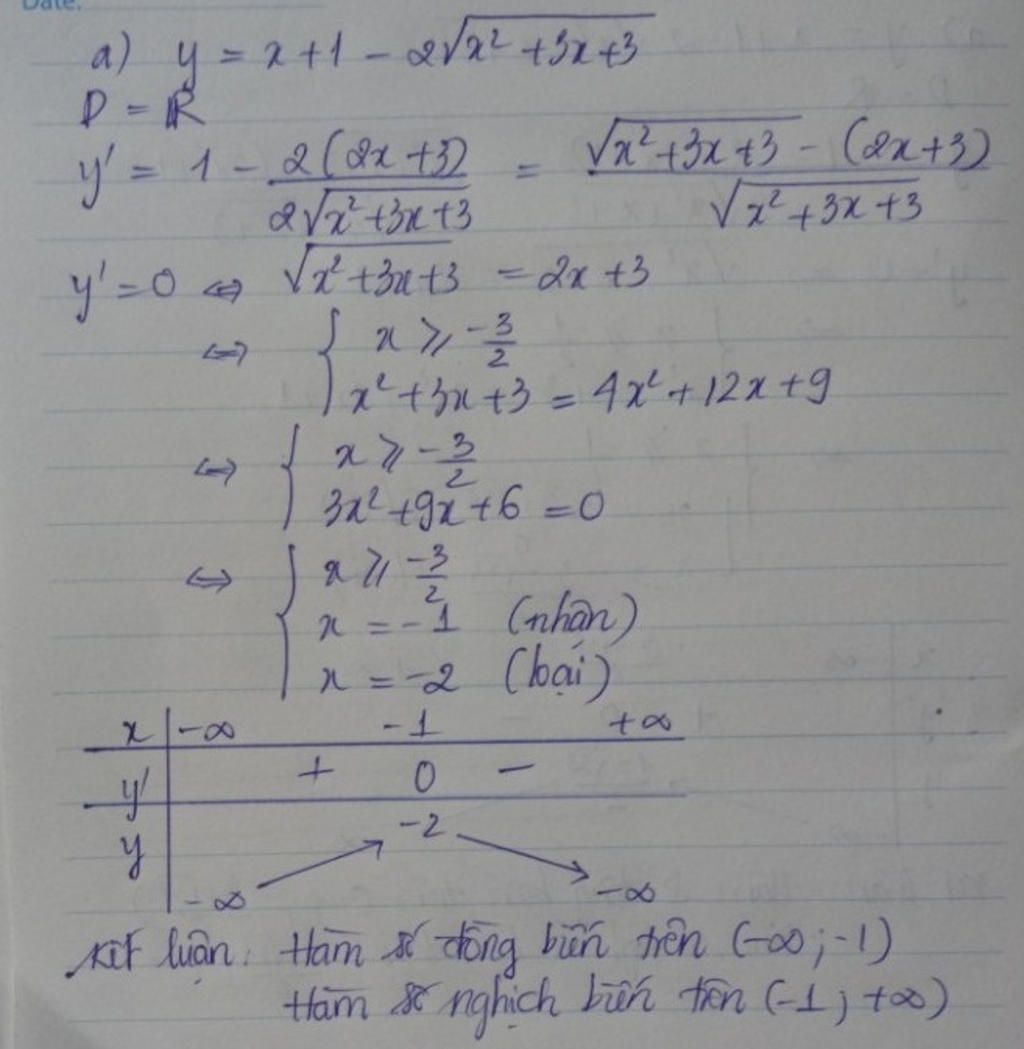 Date.
a) y = x+1 - 2√(x²+3x+3)
D = ℝ
y' = 1 - 2(2x+3)/(2√(x²+3x+3)) = (√(x²+3x+3) - (2x+3))/√(x²+3x+3)
y' = 0 ⇔ √(x²+3x+3) = 2x+3
⇔ { x ≥ -3/2
x²+3x+3 = 4x²+12x+9
⇔ { x ≥ -3/2
3x²+9x+6 = 0
⇔ { x ≥ -3/2
x = -1 (nhận)
x = -2 (loại)
x -∞ -1 +∞
y' + 0 -
y -2
-∞ -∞
Kết luận: Hàm số đồng biến trên (-∞; -1)
Hàm số nghịch biến trên (-1; +∞)